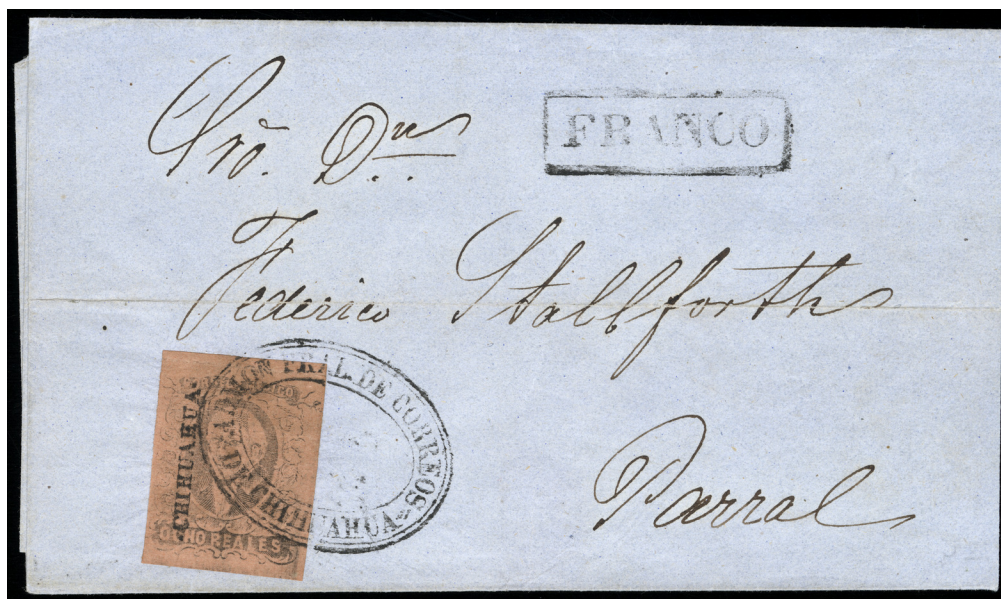 Srõ. Dn
FRANCO
Federico Stallforth
Parral
CHIHUAHUA
OCHO REALES
ADMON PRAL. DE CORREOS
DE CHIHUAHUA